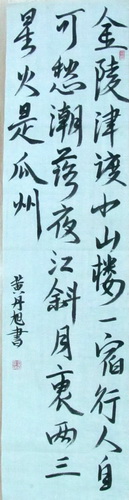 金陵津渡小山楼一宿行人自
可愁潮落夜江斜月裏两三
星火是瓜州
黄丹旭書